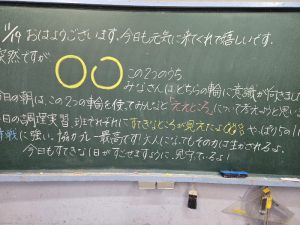 11/19 おはようございます。今日も元気に来てくれて嬉しいです。
突然ですが
この2つのうち
みなさんはどちらの輪に意識が行きました
今日の朝は、この2つの輪を使ってみんなと"ええところ"について考えようと思い
日の調理実習、班でそれぞれにすてきなところが見えたよ
やっぱり5の1
に強い。協力プレー最高です!大人になってもその力は生かされるよ。
今日もすてきな1日がすごせますように、見守っているよ!